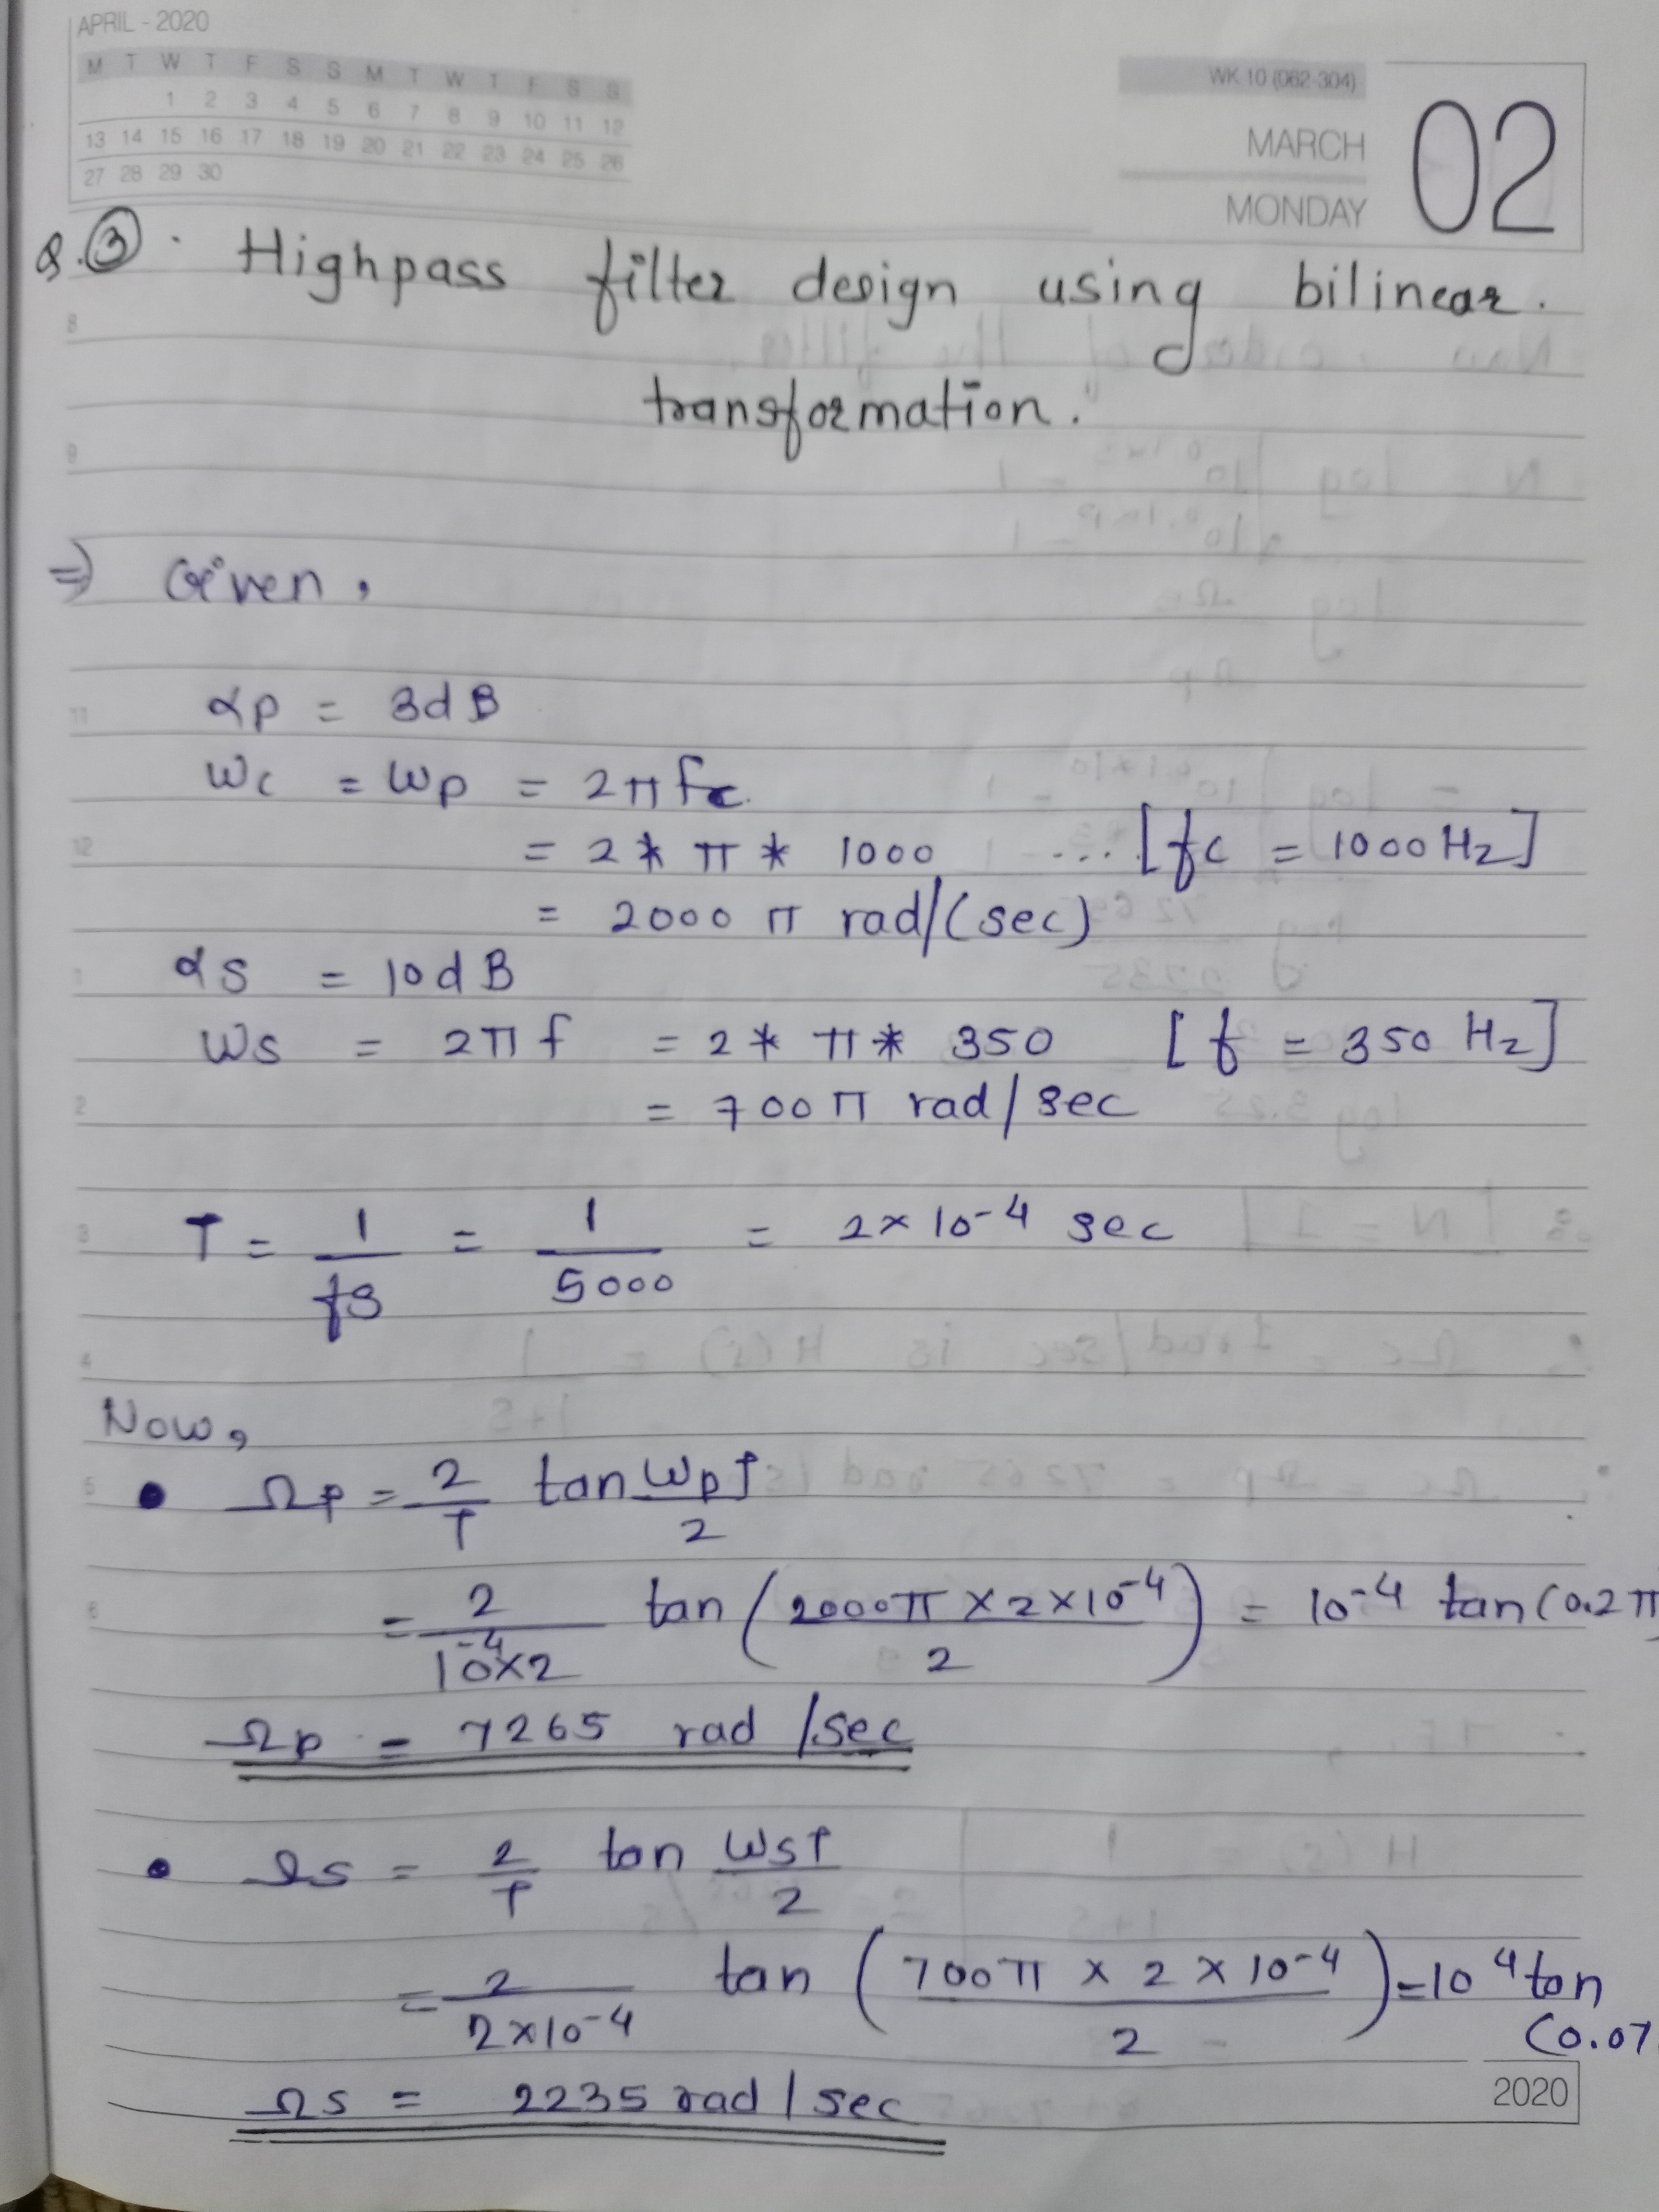 APRIL - 2020
M T W T F S S M T W T F S S
1 2 3 4 5 6 7 8 9 10 11 12
13 14 15 16 17 18 19 20 21 22 23 24 25 26
27 28 29 30
WK 10 (062-304)
MARCH
MONDAY
02
Q.③. Highpass filter design using bilinear.
transformation.
⇒ Given,
αp = 3dB
Wc = Wp = 2π fc
= 2 * π * 1000 ... [fc = 1000 Hz]
= 2000 π rad/(sec)
αs = 10dB
Ws = 2π f = 2 * π * 350 [f = 350 Hz]
= 700π rad/sec
T = 1/fs = 1/5000 = 2×10-4 sec
Now,
• Ωp = 2/T tan WpT/2
= 2/10-4×2 tan (2000π × 2×10-4/2) = 10-4 tan (0.2π
Ωp = 7265 rad /sec
• Ωs = 2/T tan WsT/2
= 2/2×10-4 tan (700π × 2 × 10-4/2) = 10 4 tan
(0.07
Ωs = 2235 rad / sec
8
9
11
12
1
2
3
4
5
6
2020